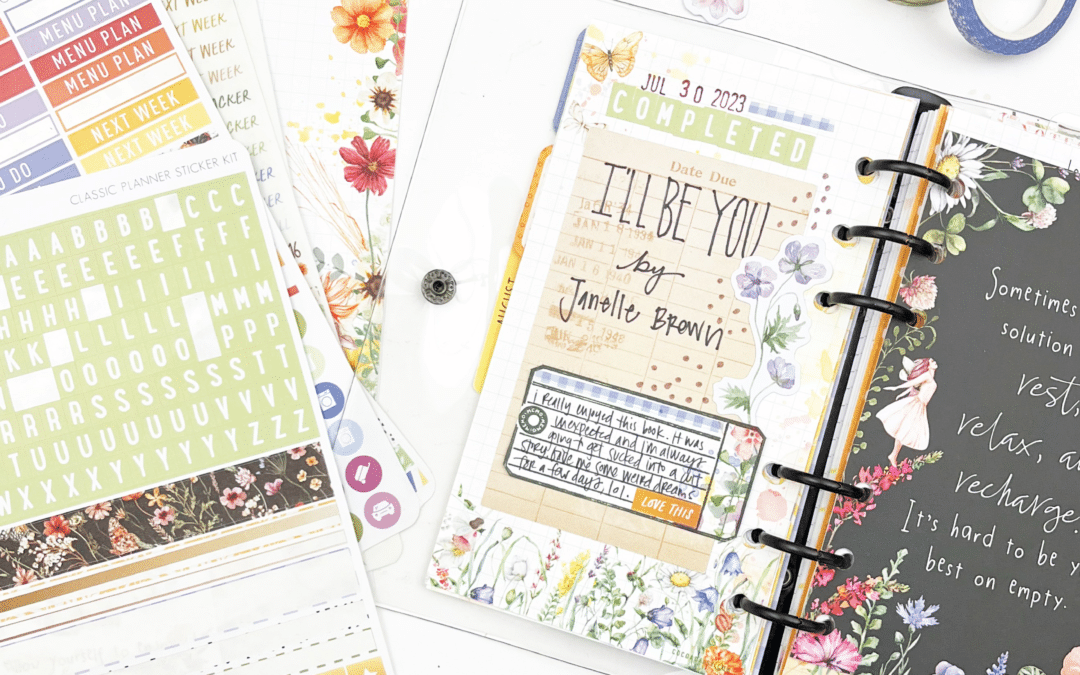 MENU PLAN
MENU PLAN
MENU PLAN
NEXT WEEK
NEXT WEEK
TO DO
NEXT WEEK
NEXT WEEK
NEXT WEEK
CLASSIC PLANNER STICKER KIT
AAABBB CCC
EEEEEEFFFF
HHHH IIIIIII
KK LLLLL MMM
OOOOOO PPP
RRRRSSSSSSTT
TUUUUUUUVVV
WXXXYYYYYZZZ
16
AUGUST
JUL 30 2023
COMPLETED
Date Due
I'LL BE YOU
by
Janelle Brown
JAN 18 1940
I really enjoyed this book. It was
unexpected and I'm always
going to get sucked into a cult
story. Gave me some weird dreams
for a few days, lol.
LOVE THIS
Sometimes
solution
rest,
relax, a
recharge.
It's hard to be y
best on empty.